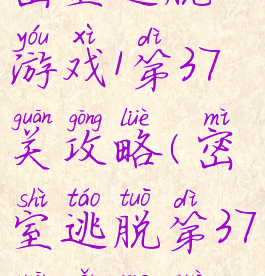 yóu xì dì
游戏1第37
guān gōng lüè mì
关攻略(密
shì táo tuō dì
室逃脱第37